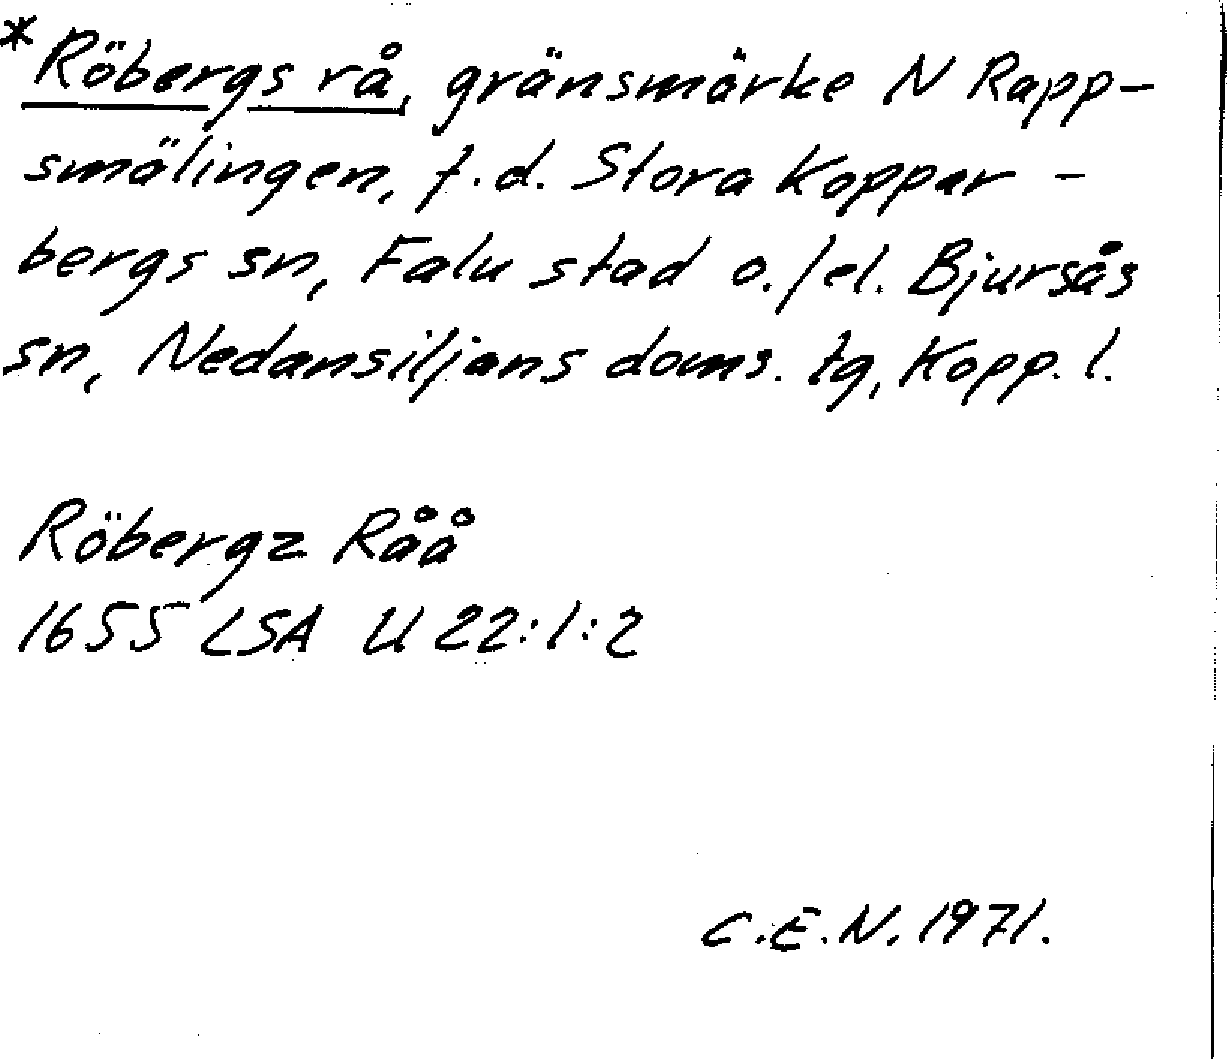 *Röbergs rå, gränsmärke N Rapp-
smälingen, f.d. Stora Koppar-
bergs sn, Falu stad o./el. Bjursås
sn, Nedansiljans doms. tg, Kopp. l.
Röbergz Råå
1655 LSA U 22:1:2
C.E.N. 1971.